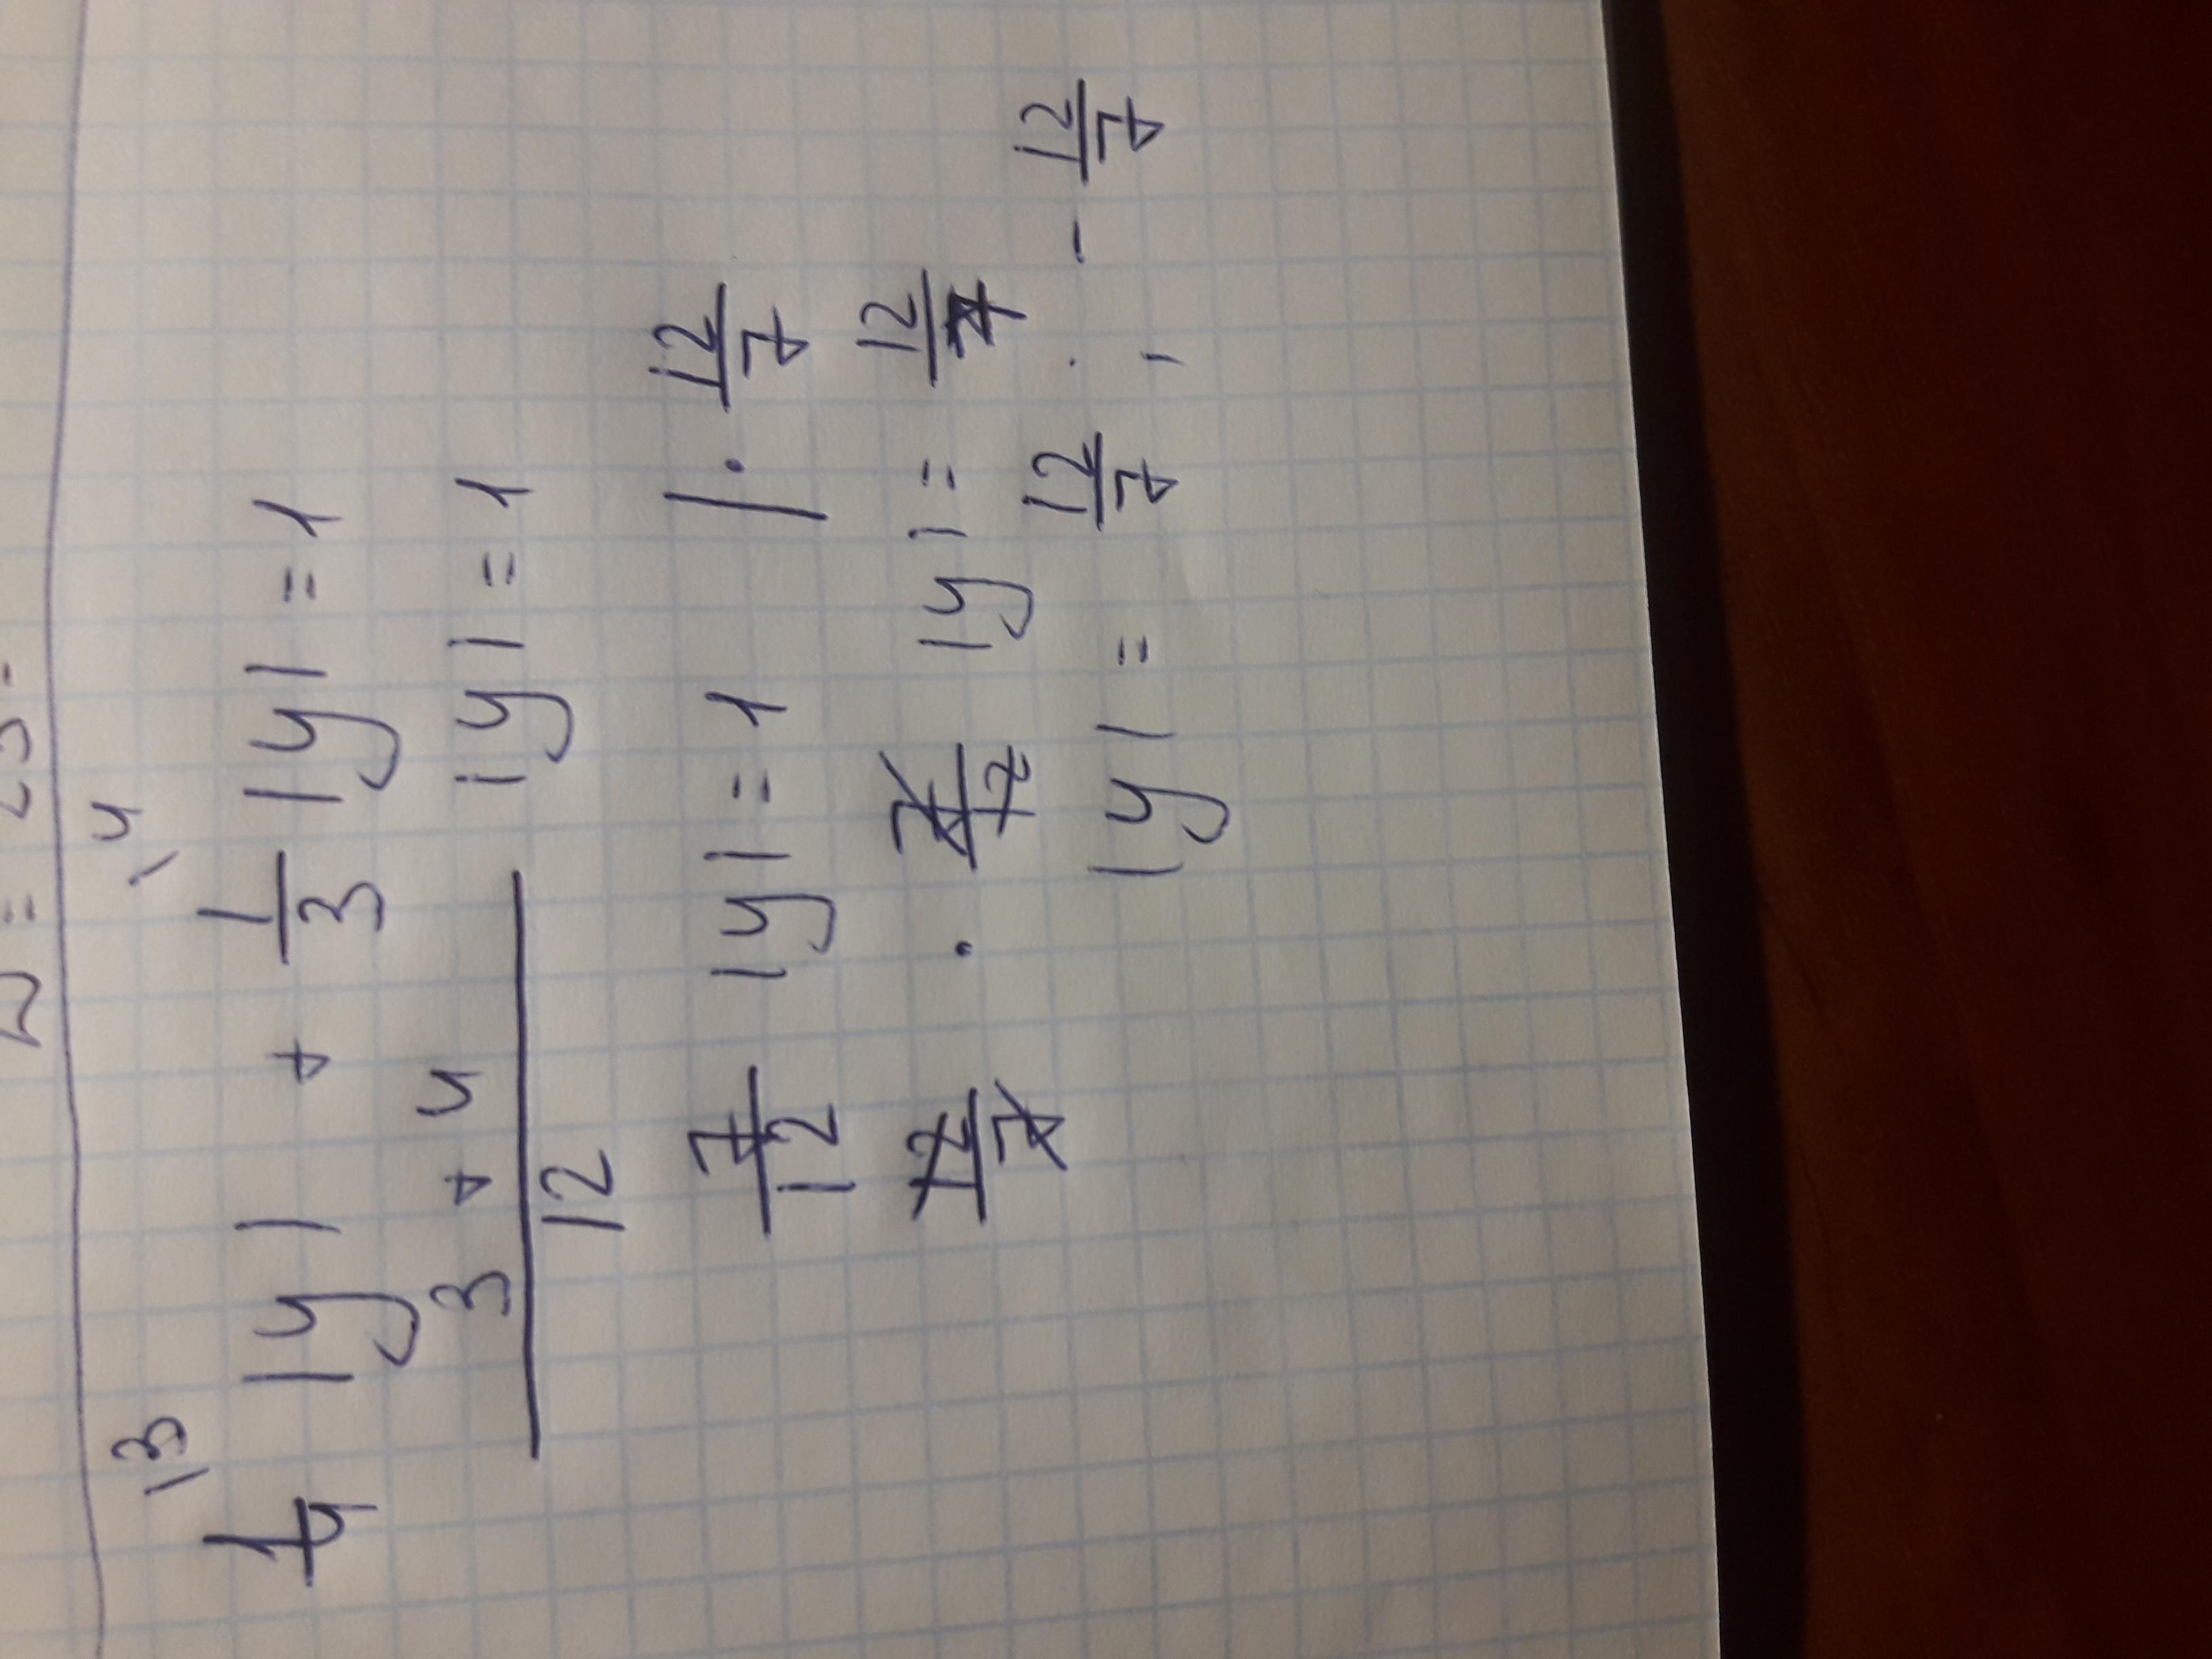 1/4 \3 |y| + 1/3 \4 |y| = 1
3 + 4 / 12 |y| = 1
7/12 |y| = 1 | · 12/7
12/7 · 7/12 |y| = 12/7
|y| = 12/7 ; - 12/7